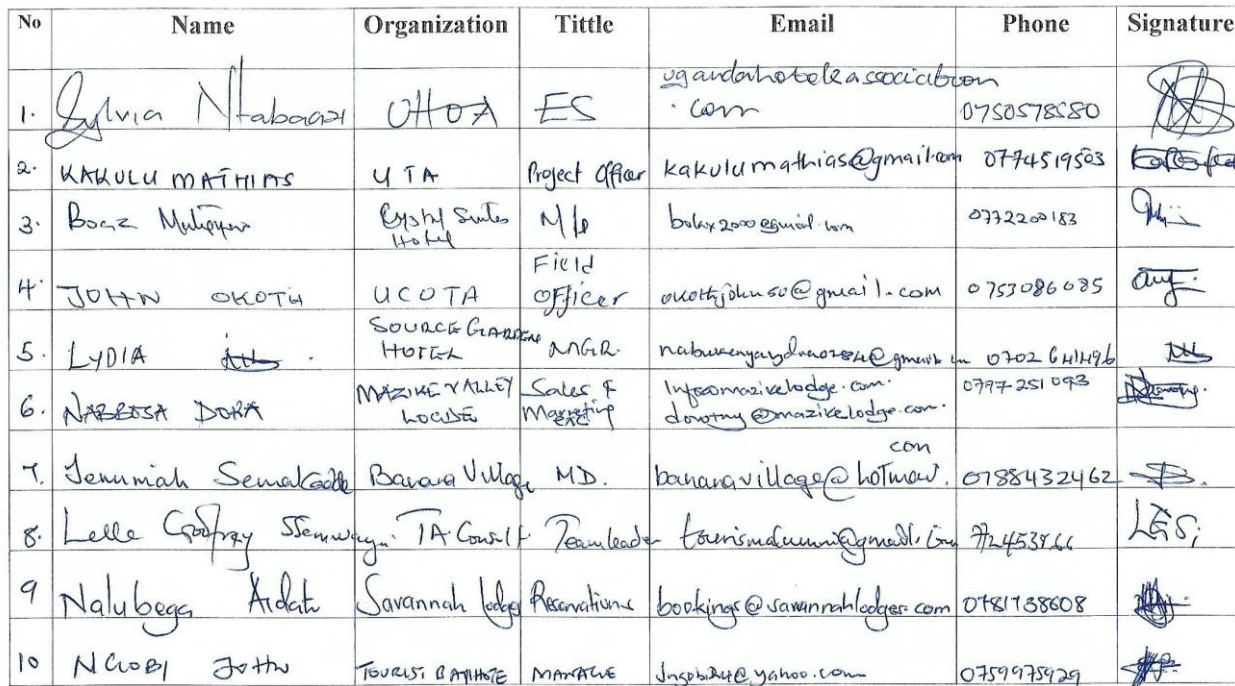 No Name Organization Tittle Email Phone Signature
1. Sylvia UHOA ES ugandahotelsassociation
.com 0750578580
2. KAKULU MATHIAS UTA Project Officer kakulumathias@gmail.com 0774519503
3. Boaz Crystal Suites
Hotel 0772200183
4. JOHN OKOTH UCOTA Field
Officer okothjohn50@gmail.com 0753086085
5. LYDIA SOURCE GARDENS
HOTEL MGR. 0702641496
6. NABBOSA DORA MAZIKE VALLEY
LODGE Sales &
Marketing
exe Info@mazikelodge.com.
dorothy@mazikelodge.com. 0797251093
7. Banana Village MD. bananavillage@hotmail.
com 0788432462
8. Lelle Godfrey TA. Consult Teamleader
9 Nalubega Aidah Savannah lodge Reservations bookings@savannahlodges.com 0781738608
10 NGOBI JOHN MANAGER Jngobi24@yahoo.com 0759975929